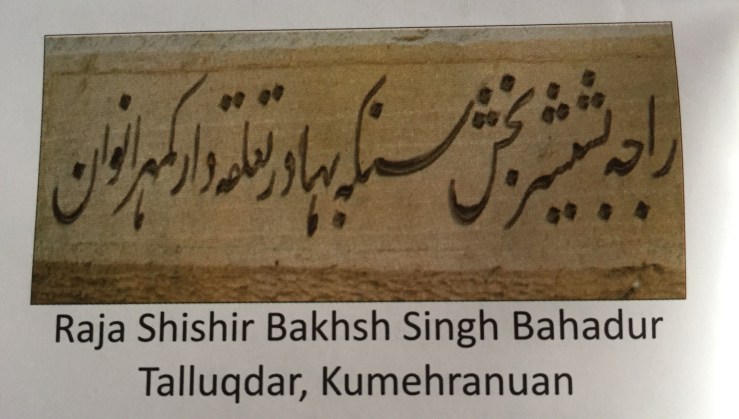 راجہ بشیشر بخش سنگہ بہادر تعلقہ دار کمہرانوان
Raja Shishir Bakhsh Singh Bahadur
Talluqdar, Kumehranuan